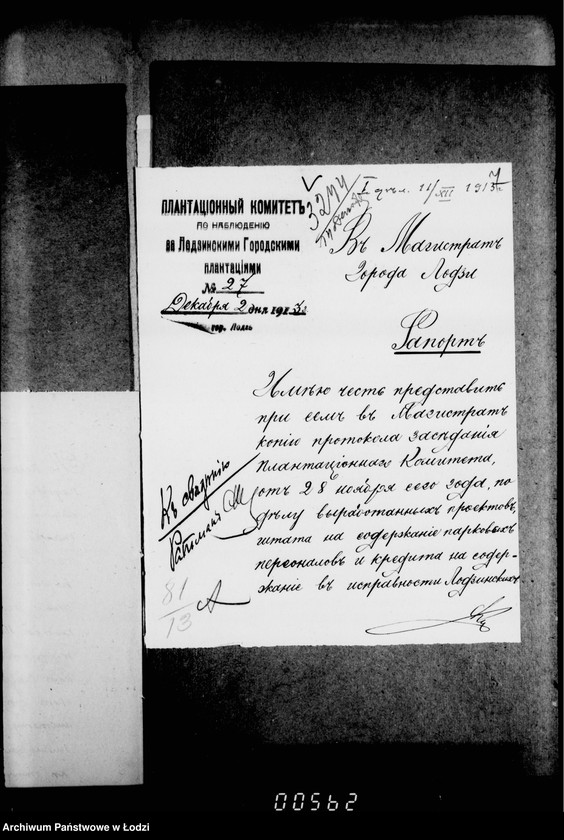 ПЛАНТАЦІОННЫЙ КОМИТЕТЪ
ПО НАБЛЮДЕНІЮ
за Лодзинскими Городскими
плантаціями
№ 27
Декабря 2 дня 1913 г.
гор. Лодзь
3274
I дѣл. 11/XII 1913 г.
7
Въ Магистратъ
Города Лодзи
Рапортъ
Имѣю честь представить
при семъ въ Магистратъ
копію протокола засѣданія
Плантаціоннаго Комитета,
отъ 28 ноября сего года, по
дѣлу выработанныхъ проектовъ,
штата на содержаніе парковыхъ
персоналовъ и кредита на содер-
жаніе въ исправности Лодзинскихъ
Къ свѣдѣнію
81/13
00562
Archiwum Państwowe w Łodzi